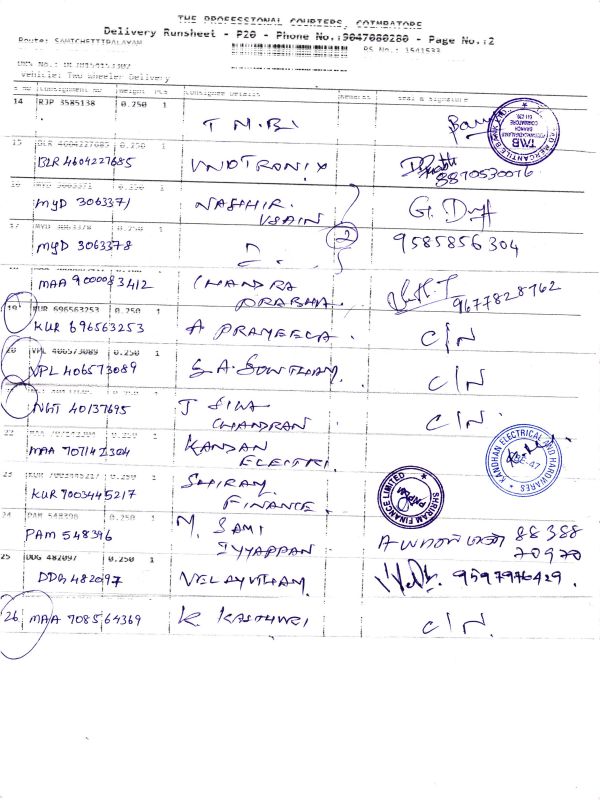 THE PROFESSIONAL COURIERS, COIMBATORE
Delivery Runsheet - P20 - Phone No.:9047080280 - Page No.:2
Route: SAMICHETTIPALAYAM
RS No.: 1541533
Vehicle: Two Wheeler Delivery
S No Consignment No Weight Pcs Consignee Details Remarks Seal & Signature
14 RJP 3585138 0.250 1
T M.B.
TMB
COIMBATORE
BRANCH
15 BLR 4604227685 0.250 1
BLR 4604227685 VNDTRONIX
8870530076
16 MYD 3063371 0.250 1
MYD 3063371 NASHIR. USAIN
17 MYD 3063378 0.250 1
2
MYD 3063378
9585856304
MAA 9000083412 CHANDRA PRABHA.
9677828762
19 KUR 696563253 0.250 1
KUR 696563253 A PRAMEELA. C/N
20 VPL 406573089 0.250 1
VPL 406573089 S.A. GOWTHAM. C/N
NGT 40137695 J SIVA CHANDRAN C/N.
22
MAA 707142304 KANDAN ELECTRI.
KANDHAN ELECTRICAL AND HARDWARES
CBE-47
23 KUR 7003445217 0.250 1
KUR 7003445217 SHRIRAM FINANCE.
SHRIRAM FINANCE LIMITED
24 PAM 548396 0.250 1
PAM 548396 M. SAMI IYYAPPAN
88388
70970
25 DDG 482097 0.250 1
DDG 482097 VELAYUTHAM. 9597976429.
26 MAA 708564369 K. KASTHURI C/N.